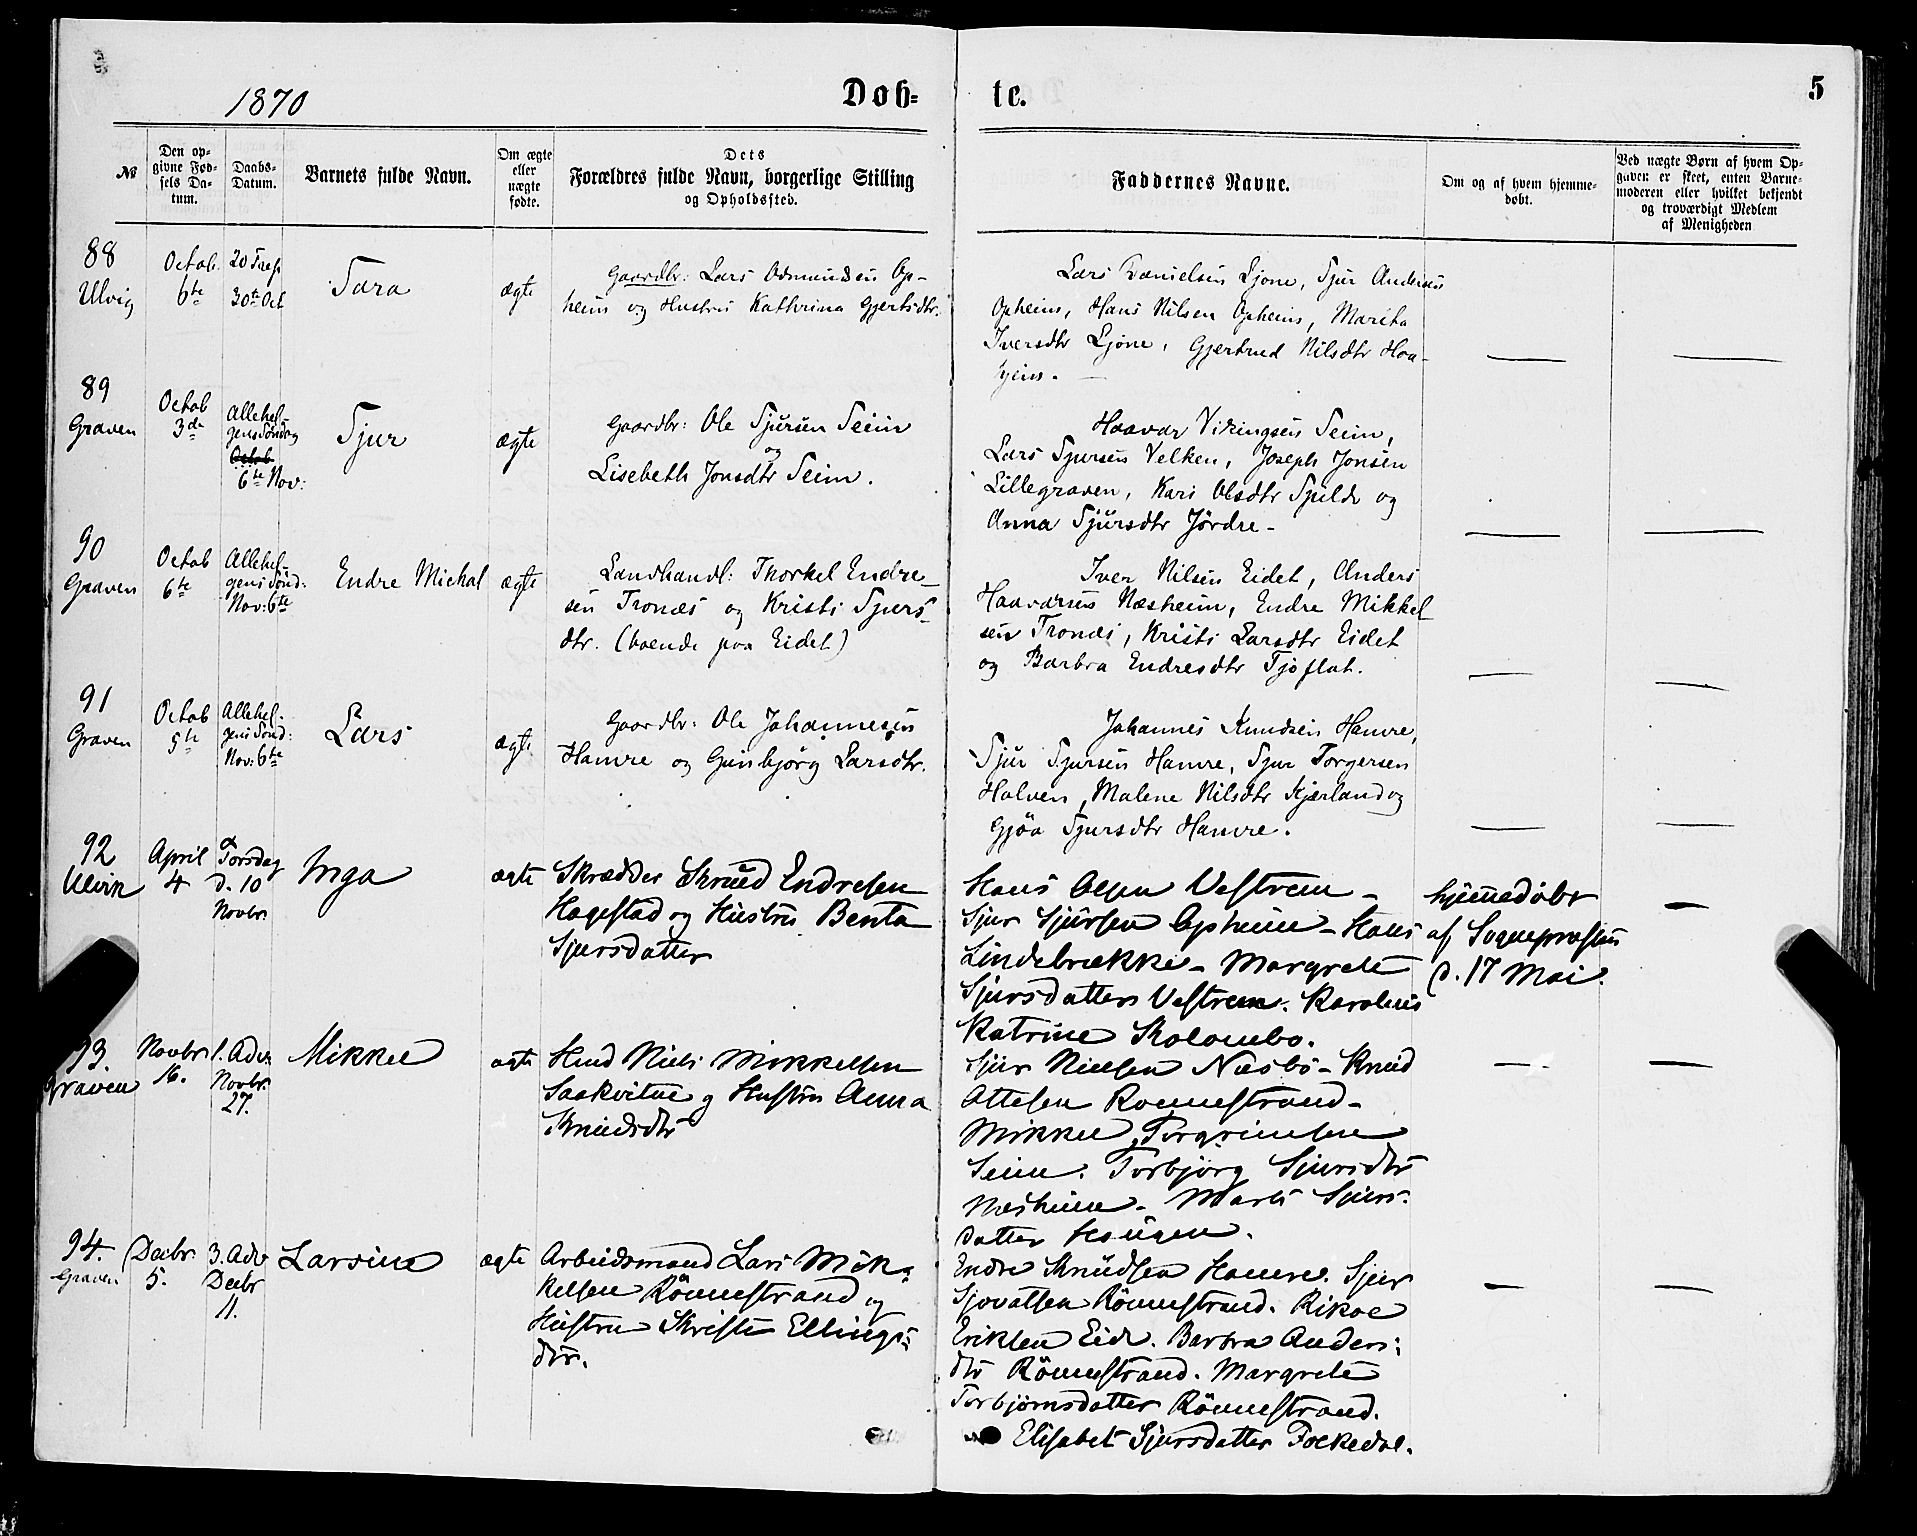 1870
Døb= te.
5
№
Den op-
givne Fød-
sels Da-
tum.
Daabs-
Datum.
Barnets fulde Navn.
Om ægte
eller
uægte
fødte.
Dets
Forældres fulde Navn, borgerlige Stilling
og Opholdssted.
Faddernes Navne.
Om og af hvem hjemme-
døbt.
Ved uægte Børn af hvem Op-
gaven er skeet, enten Barne-
moderen eller hvilket bekjendt
og troværdigt Medlem
af Menigheden
88
Ulvig
Octob.
6te
20 Tref
30te Oct
Sara
ægte
Gaardbr: Lars Odmundsen Op-
heim og Hustru Kathrina Gjertsdtr.
Lars Danielsen Ljone, Sjur Andersen
Opheim, Hans Nilsen Opheim, Marita
Iversdtr Ljone, Gjertrud Nilsdtr Haa-
hjem. —
89
Graven
Octob
3de
Allehel-
gens Søndag
Octob
6te Nov:
Sjur
ægte
Gaardbr: Ole Sjursen Seim
og
Lisebeth Jonsdtr Seim.
Haavar Vikingsen Seim,
Lars Sjursen Velken, Joseph Jonsen
Lillegraven, Kari Olsdtr Spilde og
Anna Sjursdtr Jördre-
90
Graven
Octob
6te
Allehel-
gens Sønd:
Nov: 6te
Endre Michal
ægte
Landhandl: Thorkel Endre-
sen Tronæs og Kristi Sjurs-
dtr. (boende paa Eidet)
Iver Nilsen Eidet, Anders
Haavarsen Næsheim, Endre Mikkel
sen Tronæs, Kristi Larsdtr Eidet
og Barbra Endresdtr Tjoflat.
91
Graven
Octob
5te
Allehel-
gens Sønd:
Nov: 6te
Lars
ægte
Gaardbr: Ole Johannesen
Hamre og Gunbjörg Larsdtr.
Johannes Knudsen Hamre,
Sjur Sjursen Hamre, Sjur Torgersen
Halven, Malene Nilsdtr Kjærland og
Gjöa Sjursdtr Hamre.
92
Ulvik
April
4
Torsdag
d. 10
Novbr.
Inga
ægte
Skrædder Knud Endresen
Hagestad og Hustru Benta
Sjursdatter
Hans Olsen Vestrem -
Sjur Sjursen Opheim - Hans
Lindebrække - Margrete
Sjursdatter Vestrem. Karoline
Katrine Skolombo.
hjemmedöbt
af Sognepræsten
d. 17 Mai.
93.
Graven
Novbr
16.
1. Adv
Novbr.
27.
Mikkel
ægte
Hmd Niels Mikkelsen
Saakvitne og Hustru Anna
Knudsdtr
Sjur Nielsen Næsbö - Knud
Ottesen Ronnestrand -
Mikkel Torgrimsen
Seim. Torbjörg Sjursdtr
Næsheim - Marta Sjurs-
datter Haugen.
94.
Graven
Decbr.
5.
3. Adv
Decbr
11.
Larsine
ægte
Arbeidsmand Lars Mik-
kelsen Rönnestrand og
Hustru Kristi Ellings-
dtr.
Endre Knudsen Hamre. Sjur
Sjovatsen Rönnestrand. Rikoe
Eriksen Eide. Barbra Anders:
dtr Rönnestrand. Margrete
Torbjörnsdatter Rönnestrand.
Elisabet Sjursdatter Folkedal.